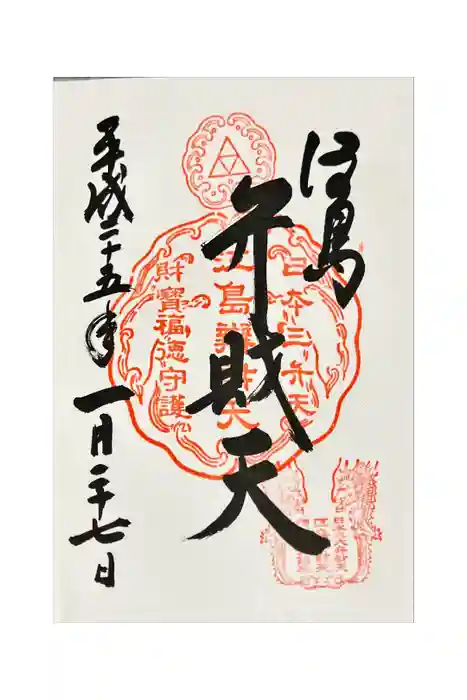 江島
弁財天
平成二十五年
一月二十七日
日本三弁天
江島辨財天
財寶福徳守護